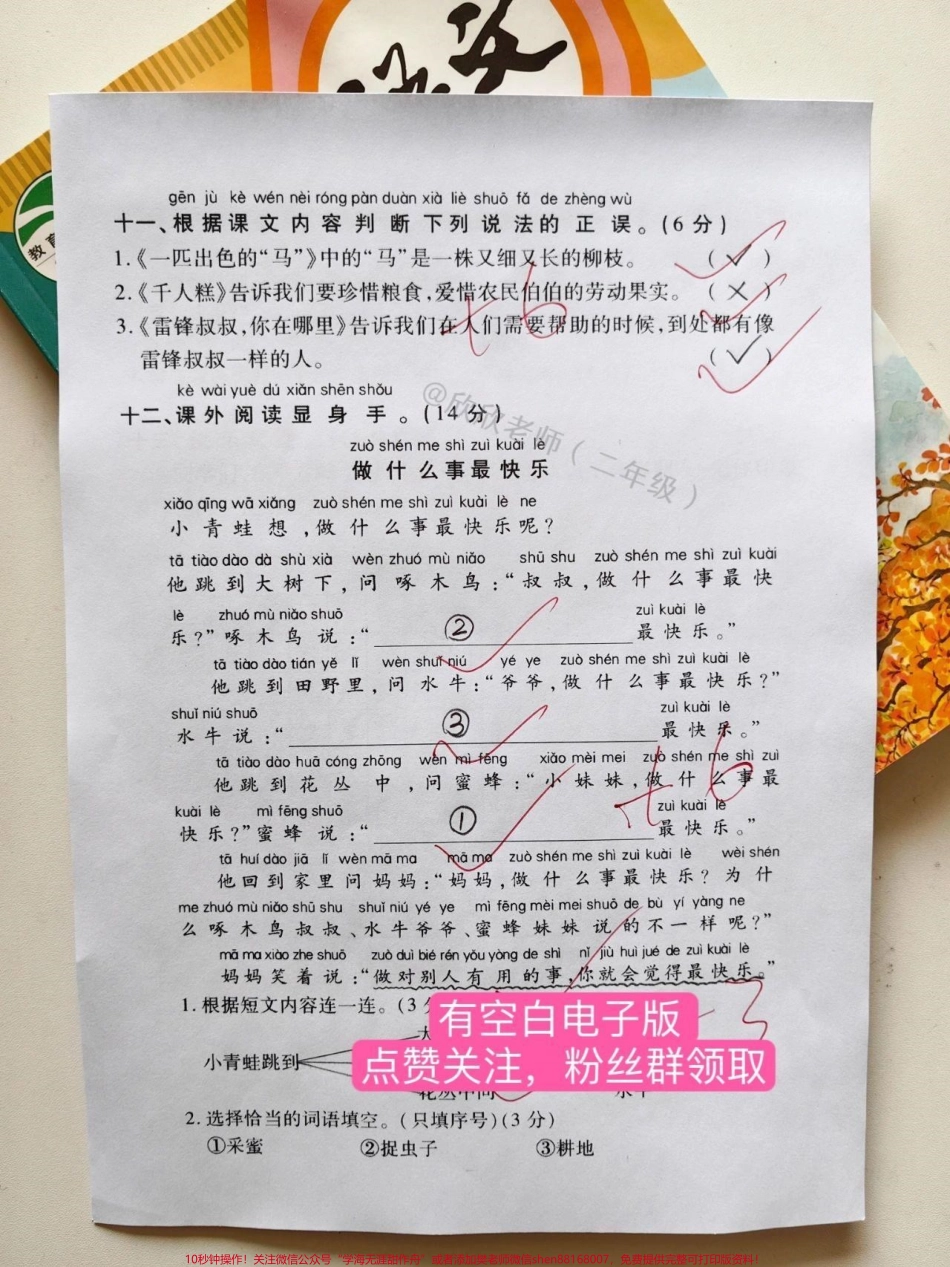 语文
教育
gēn jù kè wén nèi róng pàn duàn xià liè shuō fǎ de zhèng wù
十一、根据课文内容判断下列说法的正误。(6分)
1.《一匹出色的“马”》中的“马”是一株又细又长的柳枝。 (✓)
2.《千人糕》告诉我们要珍惜粮食,爱惜农民伯伯的劳动果实。 (×)
3.《雷锋叔叔,你在哪里》告诉我们在人们需要帮助的时候,到处都有像
雷锋叔叔一样的人。 (✓)
+6
kè wài yuè dú xiǎn shēn shǒu
十二、课外阅读显身手。(14分)
@欣欣老师(二年级)
zuò shén me shì zuì kuài lè
做什么事最快乐
xiǎo qīng wā xiǎng zuò shén me shì zuì kuài lè ne
小青蛙想,做什么事最快乐呢?
tā tiào dào dà shù xià wèn zhuó mù niǎo shū shu zuò shén me shì zuì kuài
他跳到大树下,问啄木鸟:“叔叔,做什么事最快
lè zhuó mù niǎo shuō zuì kuài lè
乐?”啄木鸟说:“②最快乐。”
tā tiào dào tián yě lǐ wèn shuǐ niú yé ye zuò shén me shì zuì kuài lè
他跳到田野里,问水牛:“爷爷,做什么事最快乐?”
shuǐ niú shuō zuì kuài lè
水牛说:“③最快乐。”
tā tiào dào huā cóng zhōng wèn mì fēng xiǎo mèi mei zuò shén me shì zuì
他跳到花丛中,问蜜蜂:“小妹妹,做什么事最
+6
kuài lè mì fēng shuō zuì kuài lè
快乐?”蜜蜂说:“①最快乐。”
tā huí dào jiā lǐ wèn mā ma mā ma zuò shén me shì zuì kuài lè wèi shén
他回到家里问妈妈:“妈妈,做什么事最快乐?为什
me zhuó mù niǎo shū shu shuǐ niú yé ye mì fēng mèi mei shuō de bù yí yàng ne
么啄木鸟叔叔、水牛爷爷、蜜蜂妹妹说的不一样呢?”
mā ma xiào zhe shuō zuò duì bié rén yǒu yòng de shì nǐ jiù huì jué de zuì kuài lè
妈妈笑着说:“做对别人有用的事,你就会觉得最快乐。”
1.根据短文内容连一连。(3
-3
有空白电子版
点赞关注,粉丝群领取
小青蛙跳到
花丛中间 水牛
2.选择恰当的词语填空。(只填序号)(3分)
①采蜜 ②捉虫子 ③耕地
10秒钟操作!关注微信公众号“学海无涯甜作舟”或者添加微老师微信shen88168007,免费提供完整可打印版资料!